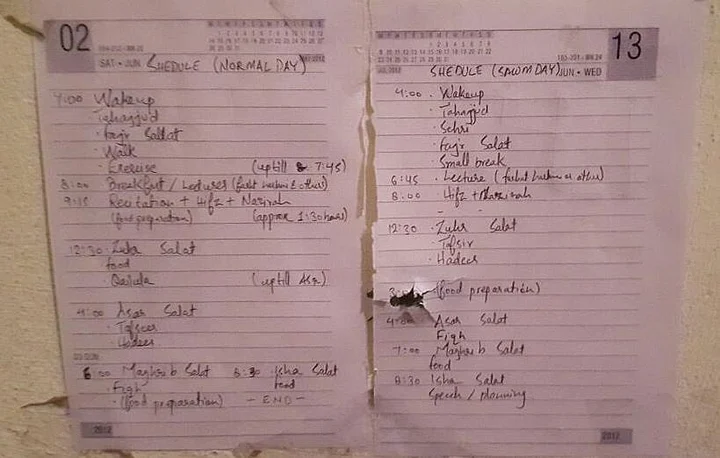 02
SAT • JUN SHEDULE (NORMAL DAY)
4:00 Wakeup
Tahajjud
• Fajr Sallat
• Walk
• Exercise (uptill 7:45)
8:00 Breakfast / Lectures (farhat hashmi & other)
9:15 Recitation + Hifz + Nazirah
(food preparation) (approx 1:30 hours)
12:30 • Zuhr Salat
food
• Qailula (uptill Asr)
4:00 Asar Salat
• Tafseer
• Hadees
03 • SUN
6:00 Maghrib Salat 8:30 • Isha Salat
• Fiqh food
• (food preparation) - END -
2012
13
SHEDULE (SAWM DAY) JUN • WED
4:00 • Wakeup
• Tahajjud
• Sehri
• Fajr Salat
• Small break
6:45 • Lecture (farhat hashmi or other)
8:00 • Hifz + Nazirah
12:30 • Zuhr Salat
Tafsir
• Hadees
(food preparation)
4:00 Asar Salat
Fiqh
7:00 Maghrib Salat
food
8:30 Isha Salat
Speech / planning
2012